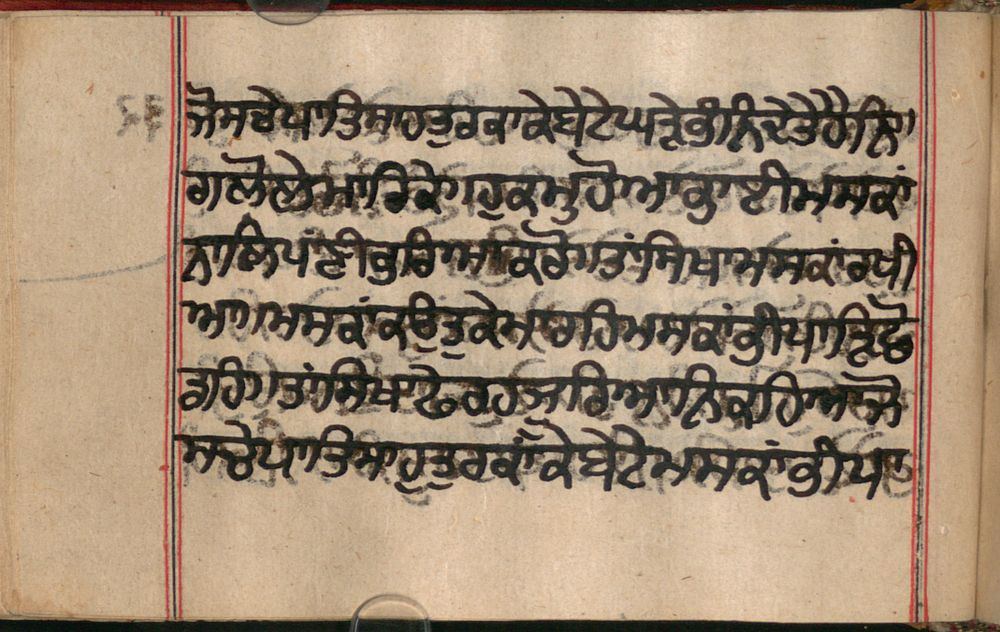 ਜੋਸਚੇਪਾਤਿਸਾਹਤੁਰਕਾਕੇਬੇਟੇਘੜੇਭੀਨਿਦੇਤੇਹੈਨਿ।
ਗਲੋਲੇਮਾਰਿਕੇ।ਹੁਕਮੁਹੋਆਭਾਈਮਸਕਾਂ
ਨਾਲਿਪਾਣੀਭਰਿਆਕਰੋ।ਤਾਂਸਿਖਾਮਸਕਾਂਰਖੀ
ਆ।ਮਸਕਾਂਕਉਤੁਕੇਮਾਰਹਿਮਸਕਾਂਭੀਪਾੜਿਛੋ
ਡਹਿ।ਤਾਂਸਿਖਾਫੇਰਹਜੂਰਿਆਨਿਕਹਿਆਜੋ
ਸਚੇਪਾਤਿਸਾਹੁਤੁਰਕਾਂਕੇਬੇਟੇਮਸਕਾਂਭੀਪਾ